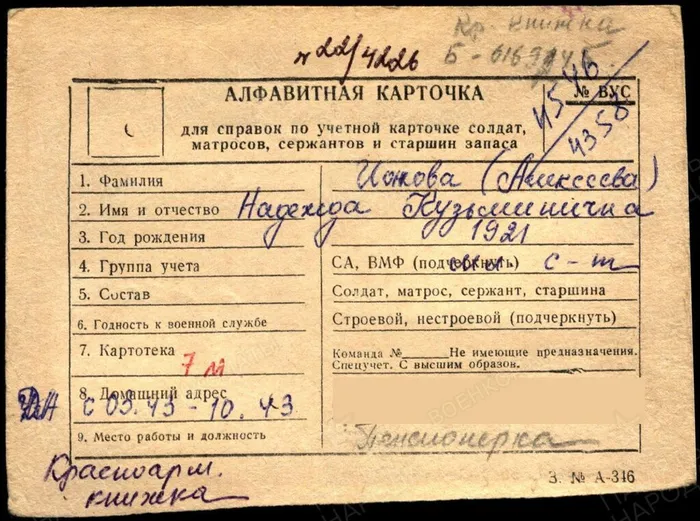 Кр. книжка
№ 22/4226
АЛФАВИТНАЯ КАРТОЧКА
для справок по учетной карточке солдат,
матросов, сержантов и старшин запаса
№ ВУС
4358
1. Фамилия
(Алексеева)
2. Имя и отчество Надежда Кузьминична
3. Год рождения 1921
4. Группа учета
СА, ВМФ (подчеркнуть) с-т
5. Состав
Солдат, матрос, сержант, старшина
6. Годность к военной службе
Строевой, нестроевой (подчеркнуть)
7. Картотека 7 м
Команда №______Не имеющие предназначения.
Спецучет. С высшим образов.
8. Домашний адрес
ДА с 03.43 - 10.43
9. Место работы и должность
Пенсионерка
Красноарм.
книжка
З. № А-346